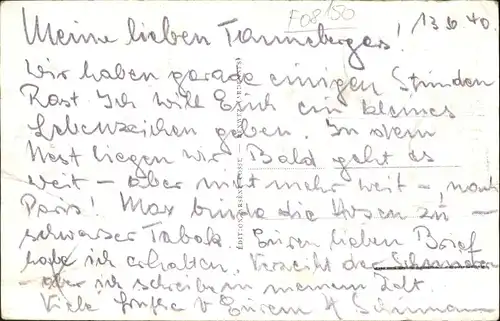 F08150
Meine lieben Tanneberger! 13 6 40
Wir haben gerade einigen Stunden
Rast. Ich will Euch ein kleines
Lebenszeichen geben. In
Nest liegen wir. Bald geht es
weit - aber nicht mehr weit -, nach
Paris! Max die Hosen zu -
schwarzer Tabak. Euren lieben Brief
habe ich erhalten. Verzeiht
- aber ich schreibe in meinem Zelt.
Viele Grüsse v Eurem